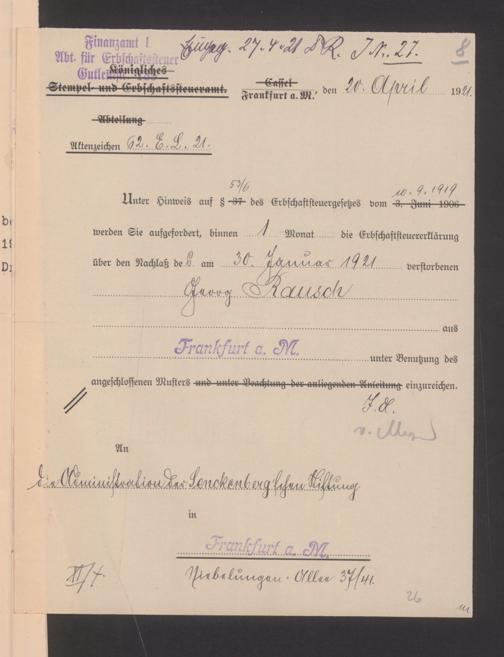 Eingeg. 27.4.21 R. J.N. 27.
8
Finanzamt I
Abt. für Erbschaftssteuer
Königliches
Stempel- und Erbschaftssteueramt.
Cassel
Frankfurt a. M. den 20. April 1921.
Abteilung
Aktenzeichen 62. E. L. 21.
53/6 10.9.1919
Unter Hinweis auf § 37 des Erbschaftsteuergesetzes vom 3. Juni 1906
werden Sie aufgefordert, binnen 1 Monat die Erbschaftsteuererklärung
über den Nachlaß des am 30. Januar 1921 verstorbenen
Georg Rausch
aus
Frankfurt a. M. unter Benutzung des
angeschlossenen Musters und unter Beachtung der anliegenden Anleitung einzureichen.
J. A.
An
die Administration der Senckenbergschen Stiftung
in
Frankfurt a. M.
Niebelungen-Allee 37/41.
26